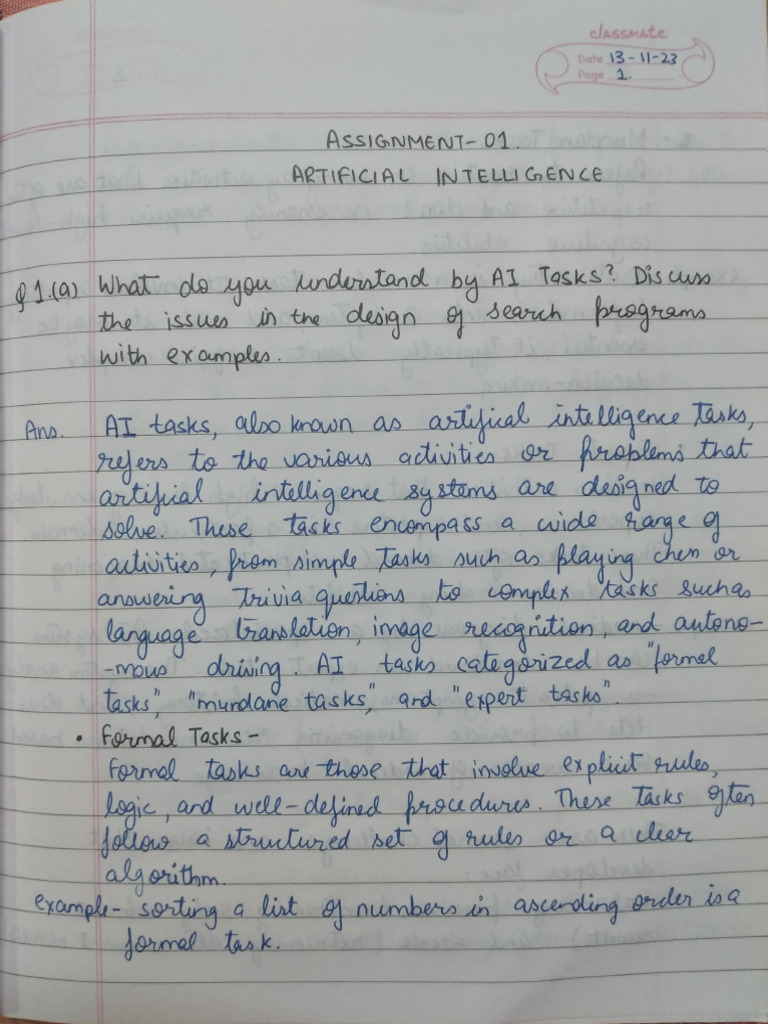 classmate
Date 13-11-23
Page 1.
ASSIGNMENT-01.
ARTIFICIAL INTELLIGENCE
Q1.(a) What do you understand by AI Tasks? Discuss
the issues in the design of search programs
with examples.
Ans. AI tasks, also known as artifical intelligence tasks,
refers to the various activities or problems that
artificial intelligence systems are designed to
solve. These tasks encompass a wide range of
activities, from simple tasks such as playing chess or
answering trivia questions to complex tasks such as
language translation, image recognition, and autono-
-mous driving. AI tasks categorized as "formal
tasks", "mundane tasks", and "expert tasks".
• Formal Tasks-
Formal tasks are those that involve explicit rules,
logic, and well-defined procedures. These tasks often
follow a structured set of rules or a clear
algorithm.
example- sorting a list of numbers in ascending order is a
formal task.